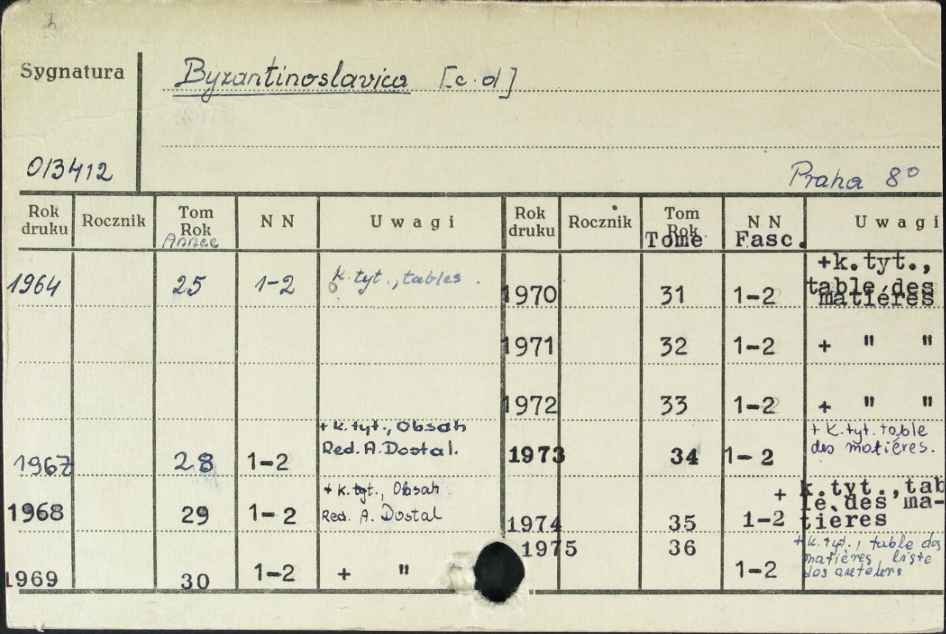 Sygnatura
Byzantinoslavica [c.d]
013412
Praha 8°
Rok druku Rocznik Tom Rok Année N N Uwagi Rok druku Rocznik Tom Rok Tome N N Fasc. Uwagi
1964 25 1-2 k. tyt., tables.
1970 31 1-2 +k.tyt., table des matiéres
1971 32 1-2 + " "
1972 33 1-2 + " "
1967 28 1-2 + k. tyt., Obsah Red. A. Dostal.
1973 34 1-2 + k. tyt. table des matiéres.
1968 29 1-2 + k. tyt., Obsah Red. A. Dostal
1974 35 1-2 + k.tyt., tab le des ma- tieres
1969 30 1-2 + "
1975 36 1-2 + k. tyt., table des matières liste des auteurs